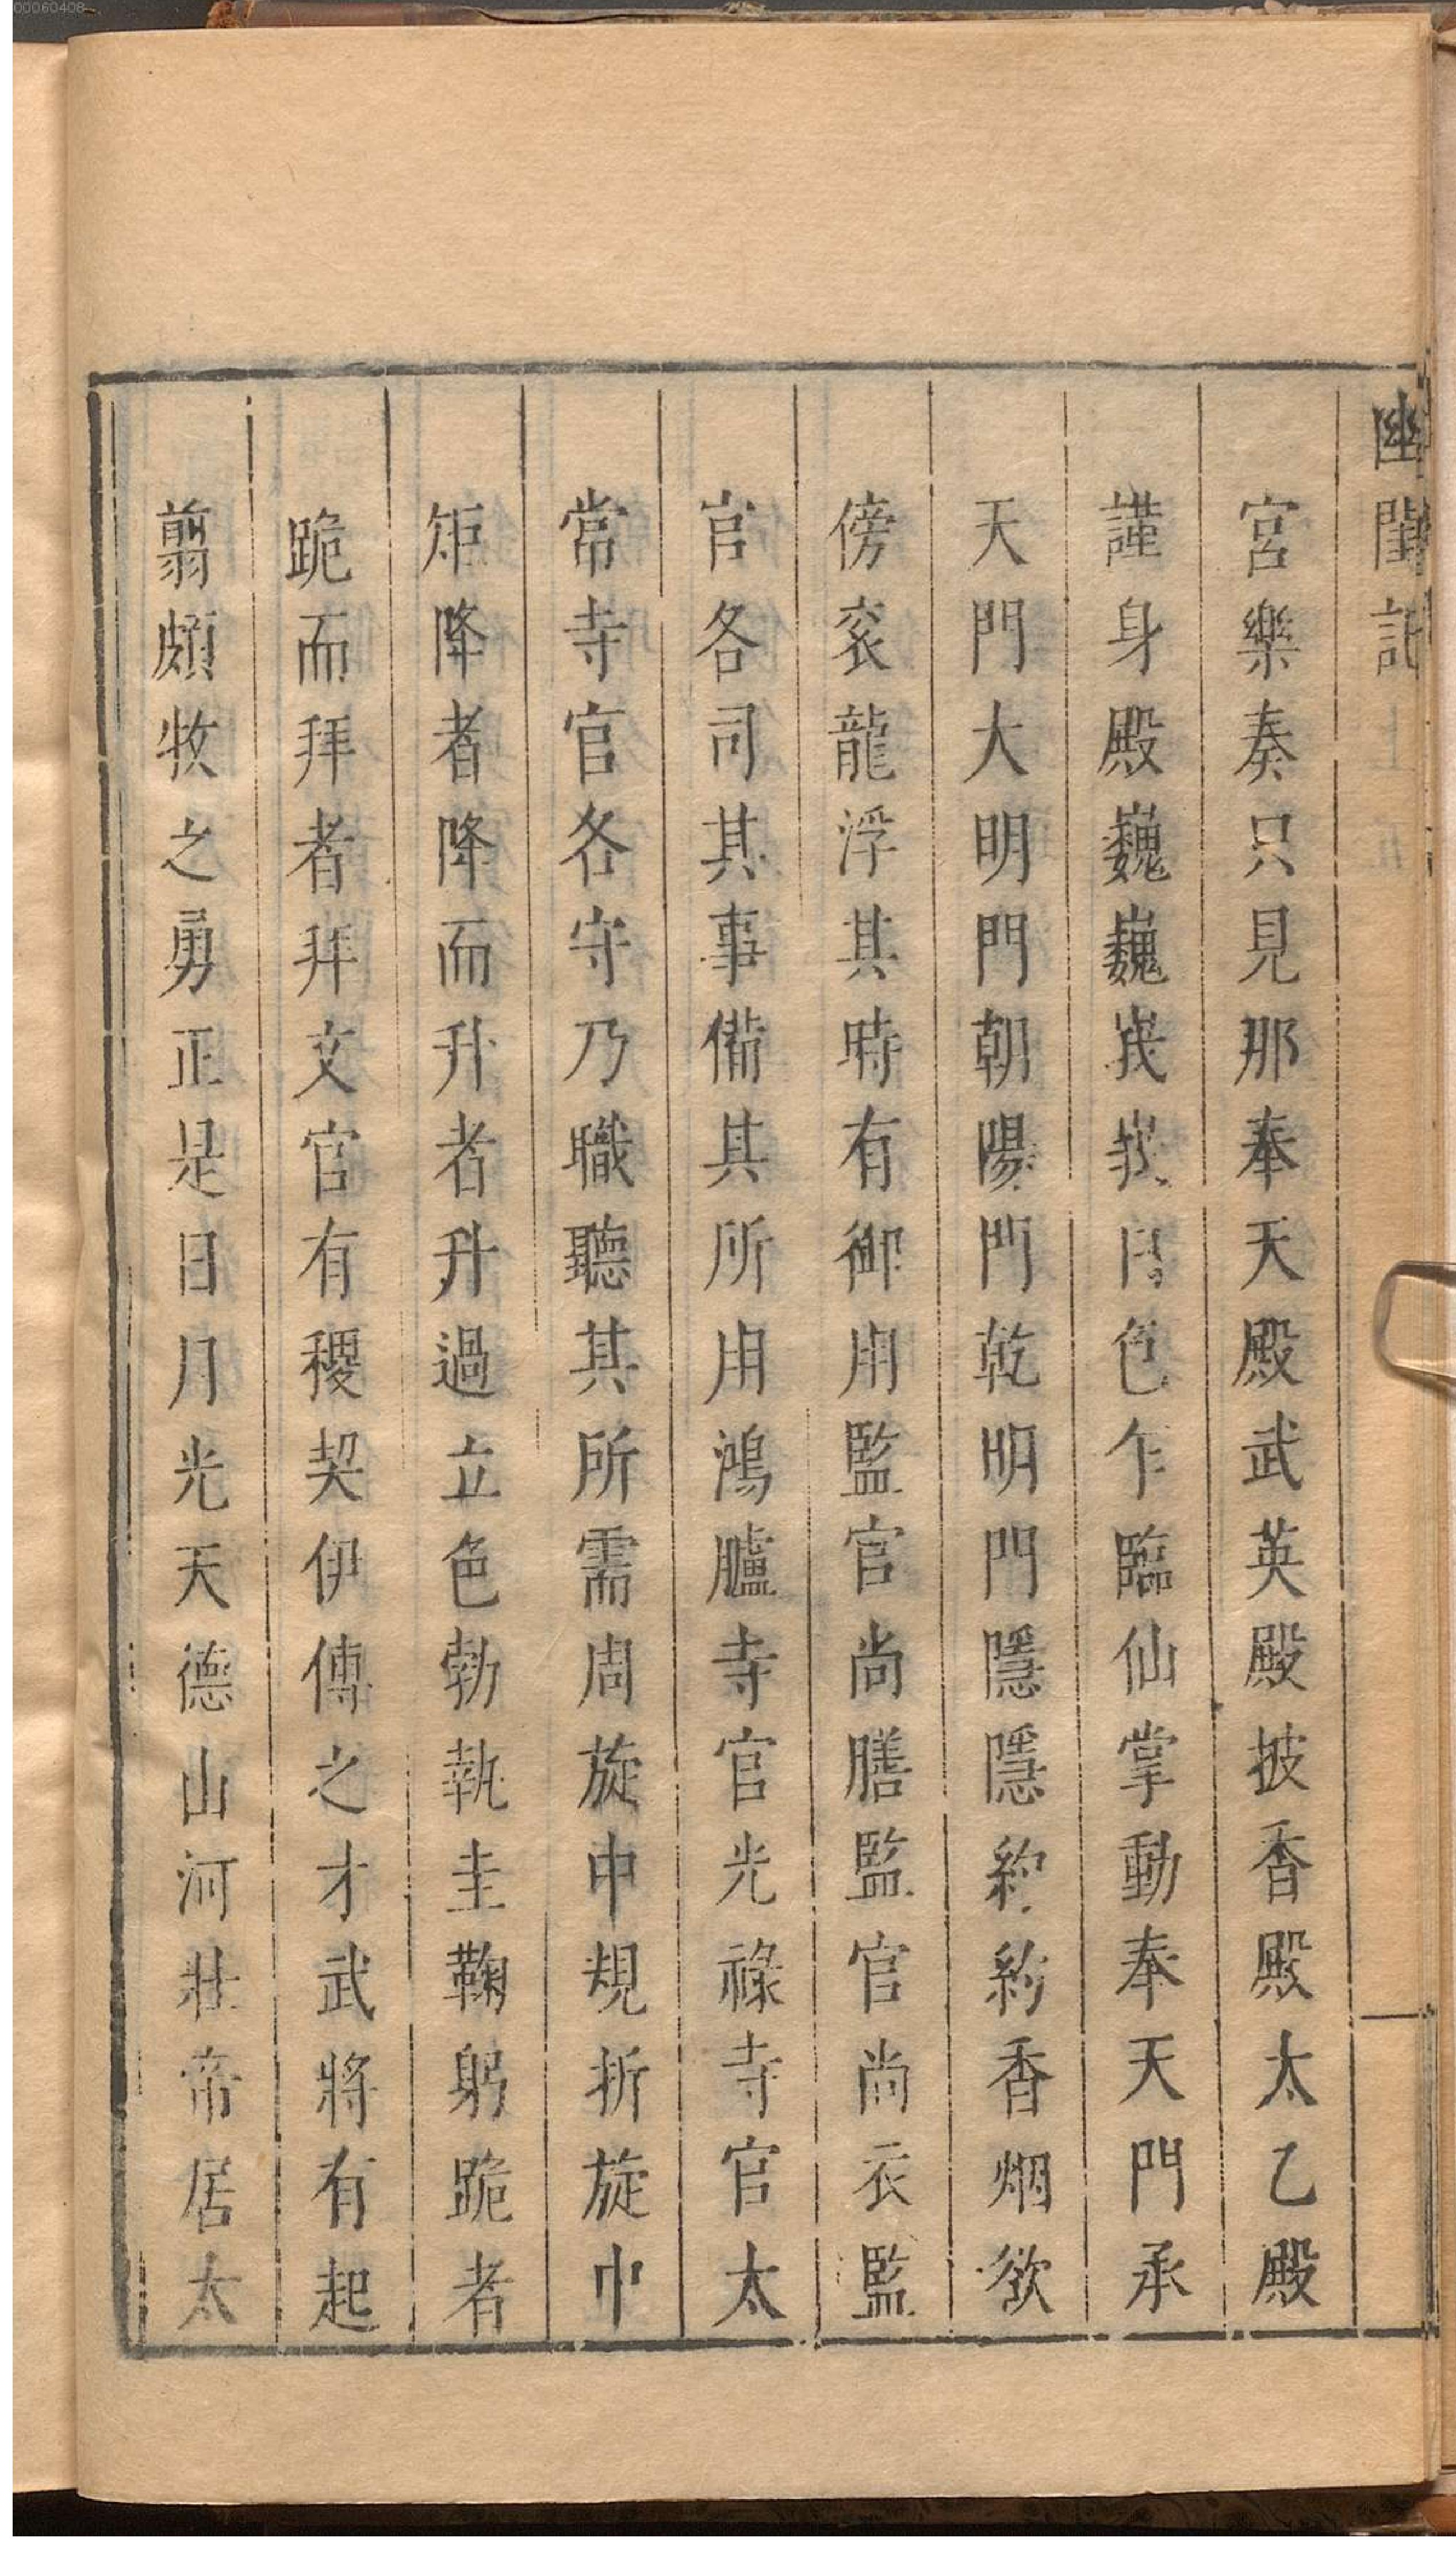 幽閨記 上 五
宮樂奏只見那奉天殿武英殿披香殿太乙殿
謹身殿巍巍峩峩日色乍臨仙掌動奉天門承
天門大明門朝陽門乾明門隱隱約約香烟欲
傍衮龍浮其時有御用監官尚膳監官尚衣監
官各司其事備其所用鴻臚寺官光祿寺官太
常寺官各守乃職聽其所需周旋中規折旋中
矩降者降而升者升過立色勃執圭鞠躬跪者
跪而拜者拜文官有稷契伊傅之才武將有起
翦頗牧之勇正是日月光天德山河壯帝居太
00060408